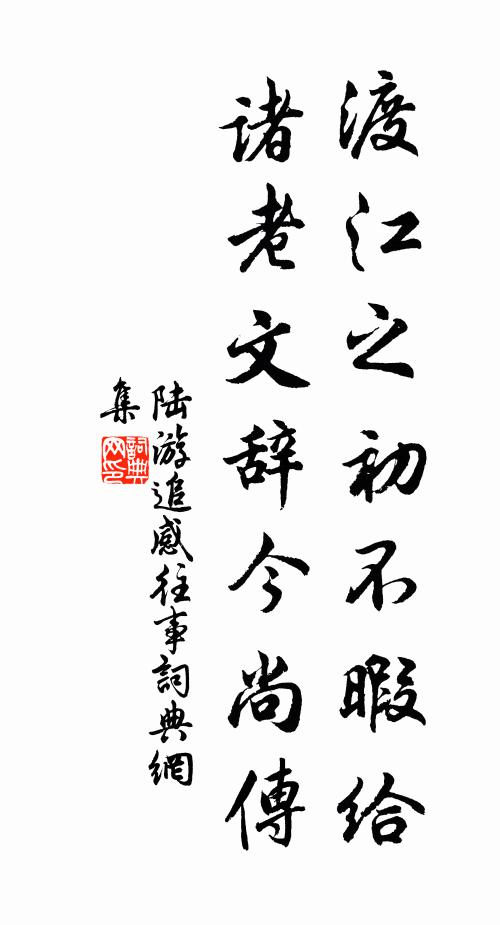 渡江之初不暇给
诸老文辞今尚傳
陆游追感往事詞典網
集
詞典
网印